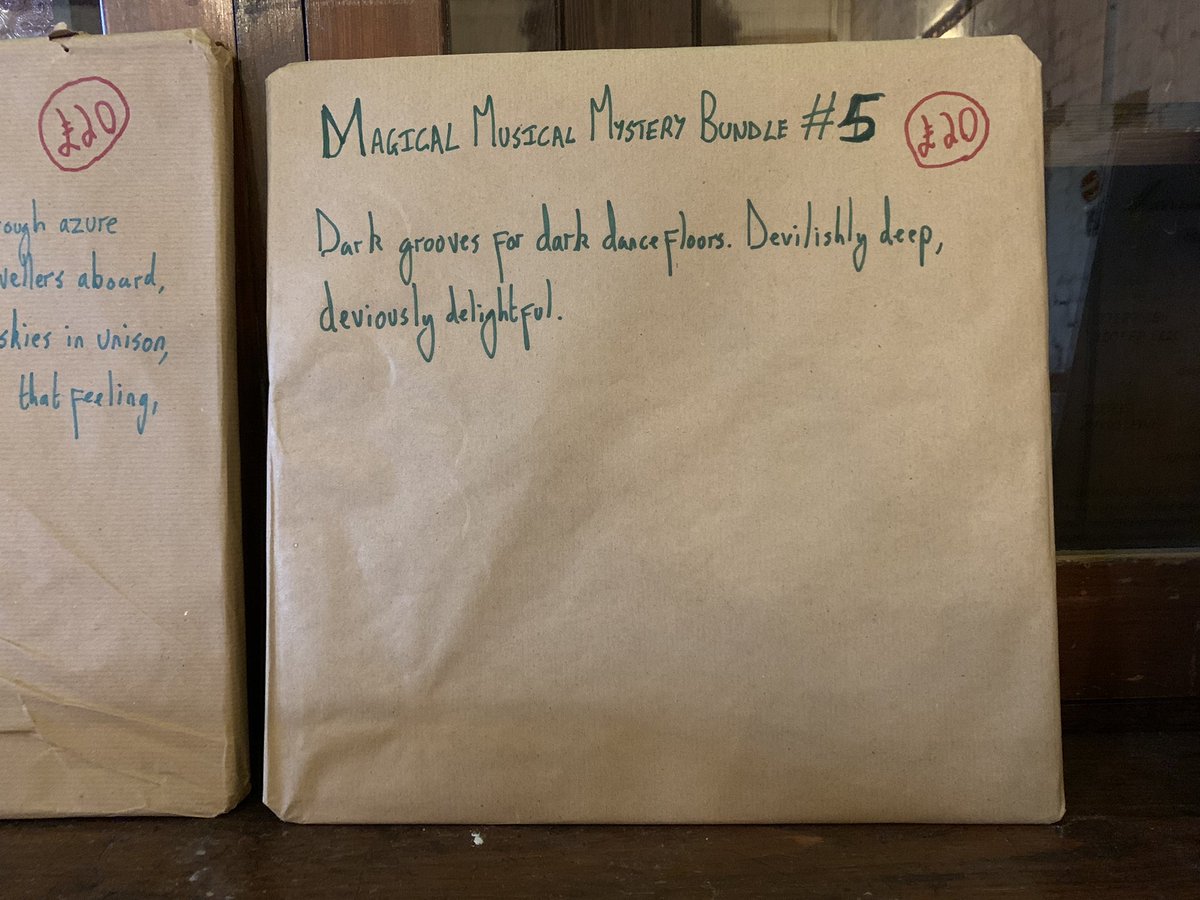 £20
azure
aboard,
skies in unison,
that feeling,
MAGICAL MUSICAL MYSTERY BUNDLE #5
£20
Dark grooves for dark dancefloors. Devilishly deep,
deviously delightful.